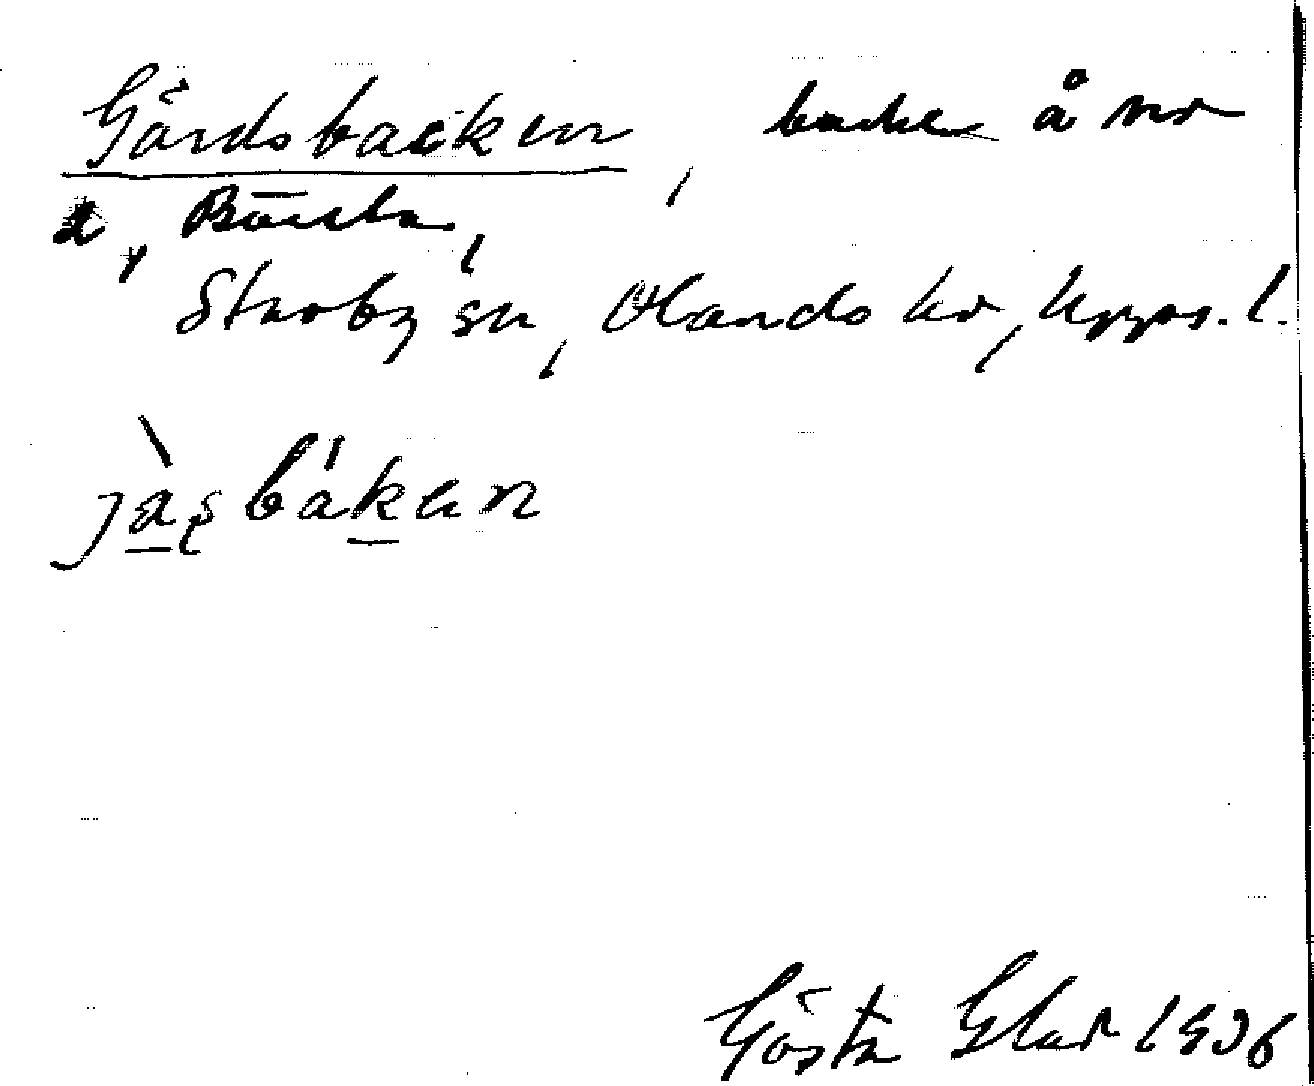 Gårdsbacken, backe å nr
2, Börsta,
Stavby sn, Olands hd, Upps. l.
jàșbákan
Gösta Glad 1936